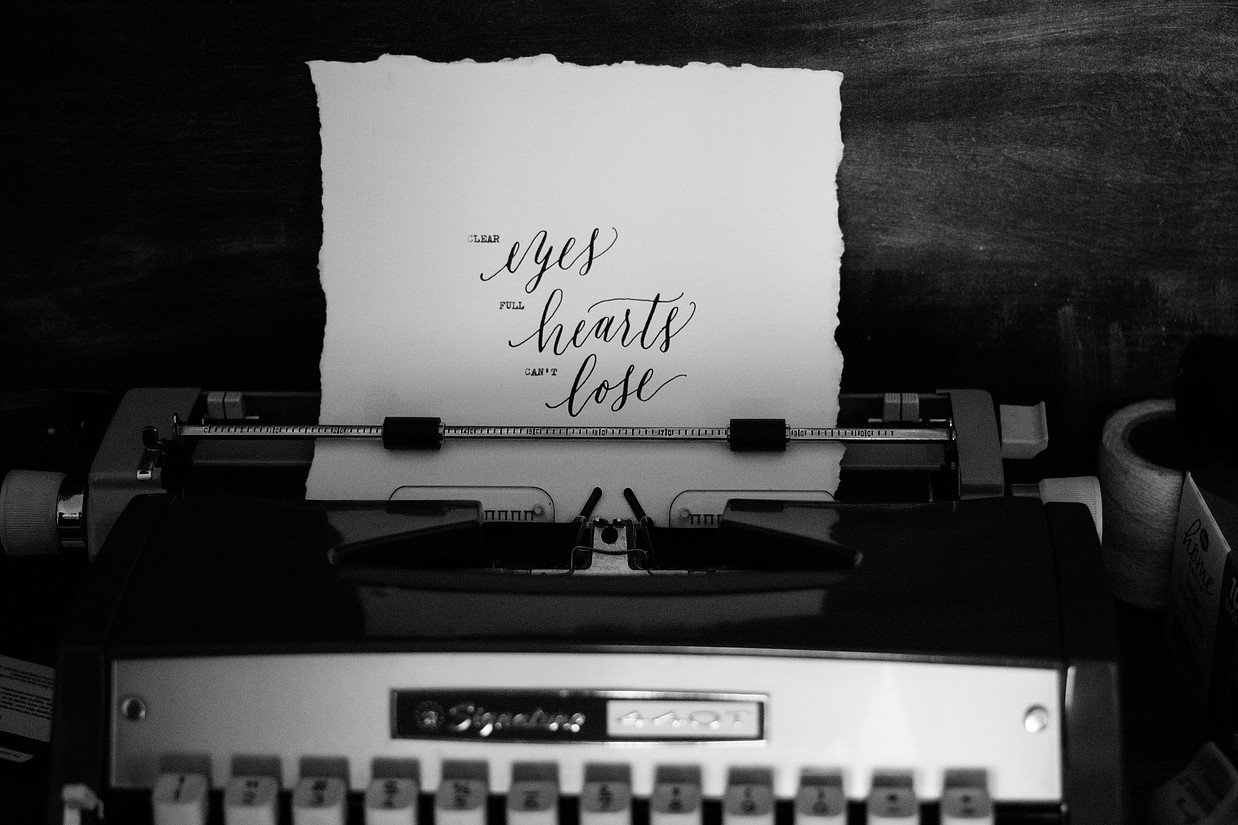 CLEAR eyes
FULL hearts
CAN'T lose
Signature 440T
home